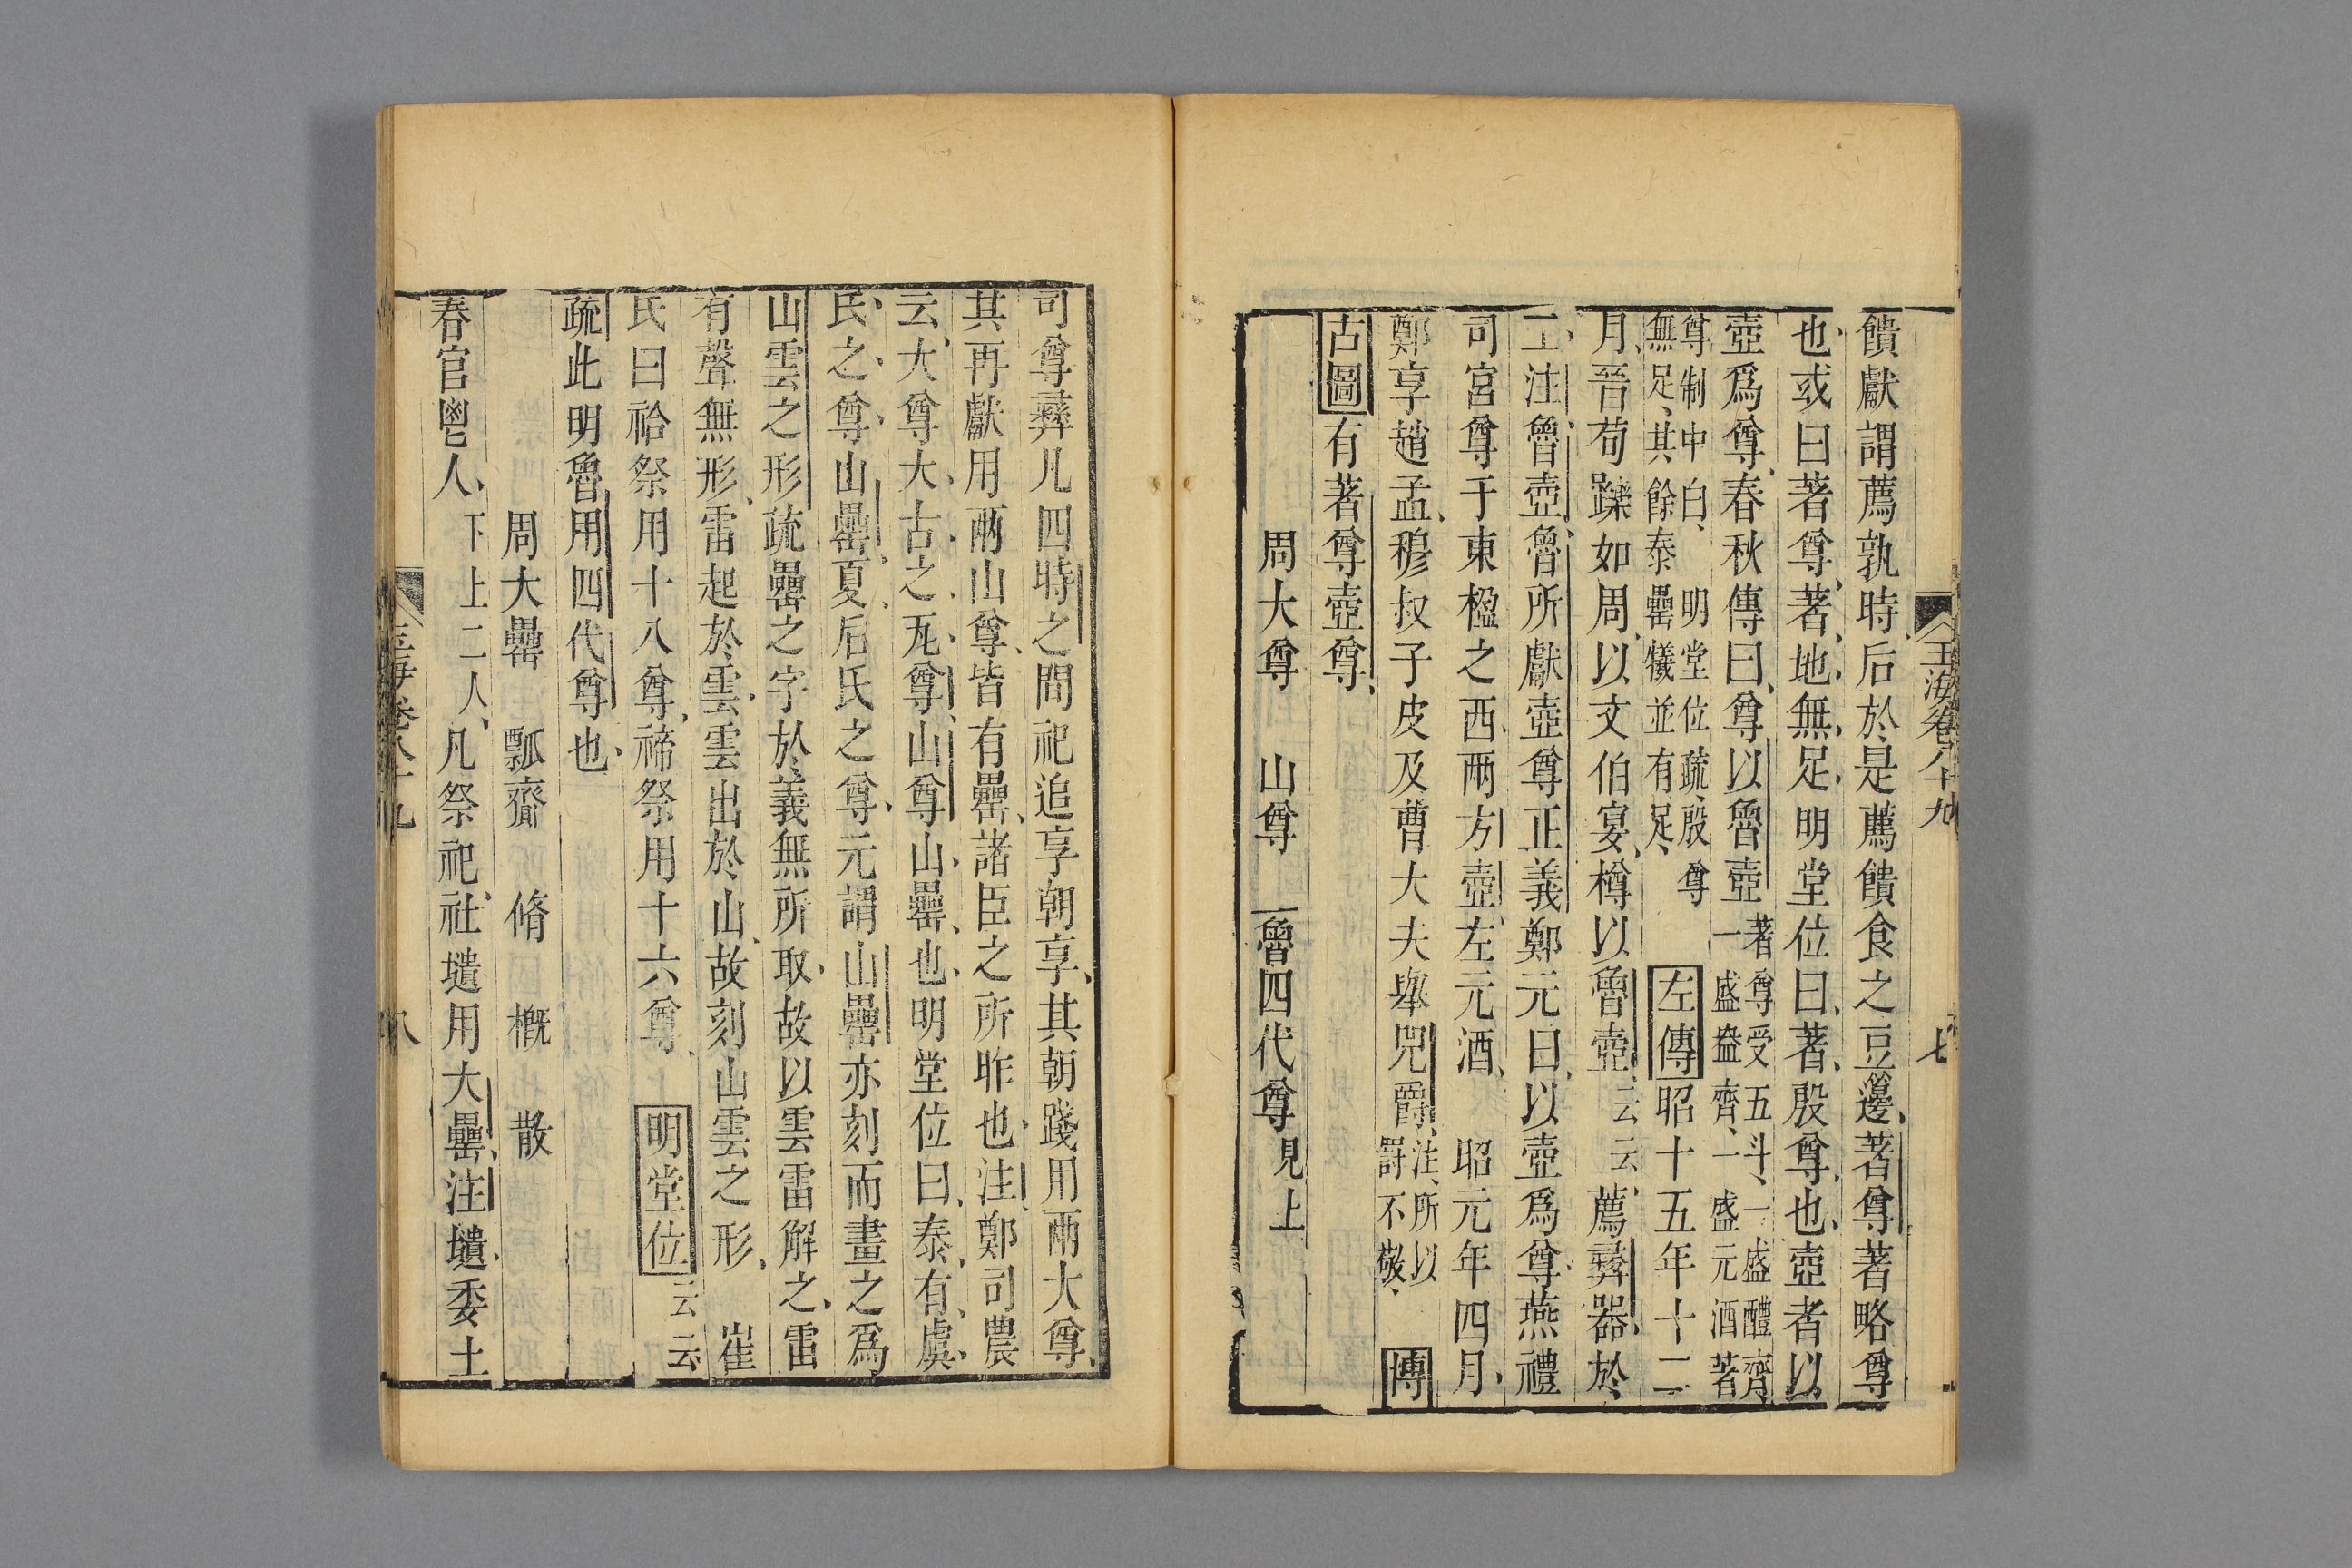 玉海卷八十九 七
饋獻謂薦孰時后於是薦饋食之豆籩著尊著略尊
也或曰著尊著地無足明堂位曰著殷尊也壺者以
壺爲尊春秋傳曰尊以魯壺著尊受五斗一盛醴齊
一盛盎齊一盛元酒著
尊制中白明堂位疏殷尊
無足其餘泰罍犧並有足
左傳昭十五年十二
月晉荀躒如周以文伯宴樽以魯壺云云薦彝器於
王注魯壺魯所獻壺尊正義鄭元曰以壺爲尊燕禮
司宮尊于東楹之西兩方壺左元酒 昭元年四月
鄭享趙孟穆叔子皮及曹大夫舉兕爵注所以
罰不敬
博
古圖有著尊壺尊
周大尊 山尊 魯四代尊見上
司尊彝凡四時之間祀追享朝享其朝踐用兩大尊
其再獻用兩山尊皆有罍諸臣之所昨也注鄭司農
云大尊大古之瓦尊山尊山罍也明堂位曰泰有虞
氏之尊山罍夏后氏之尊元謂山罍亦刻而畫之爲
山雲之形疏罍之字於義無所取故以雲雷解之雷
有聲無形雷起於雲雲出於山故刻山雲之形 崔
氏曰祫祭用十八尊禘祭用十六尊 明堂位云云
疏此明魯用四代尊也
周大罍 瓢齎 脩 概 散
春官鬯人下上二人凡祭祀社壝用大罍注壝委土
玉海卷八十九 八